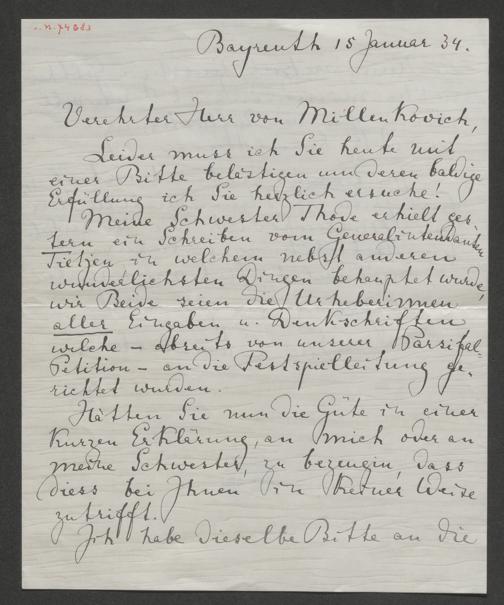 Bayreuth 15 Januar 34.
Verehrter Herr von Millenkovich,
Leider muss ich Sie heute mit
einer Bitte belästigen um deren baldige
Erfüllung ich Sie herzlich ersuche!
Meine Schwester Thode erhielt ges-
tern ein Schreiben vom Generalintendanten
Tietjen in welchem nebst anderen
wunderlichsten Dingen behauptet wurde,
wir Beide seien die Urheberinnen
aller Eingaben u. Denkschriften
welche – abseits von unserer Parsifal-
Petition – an die Festspielleitung ge-
richtet wurden.
Hätten Sie nun die Güte in einer
kurzen Erklärung, an mich oder an
meine Schwester, zu bezeugen, dass
diess bei Ihnen in keiner Weise
zutrifft.
Ich habe dieselbe Bitte an die